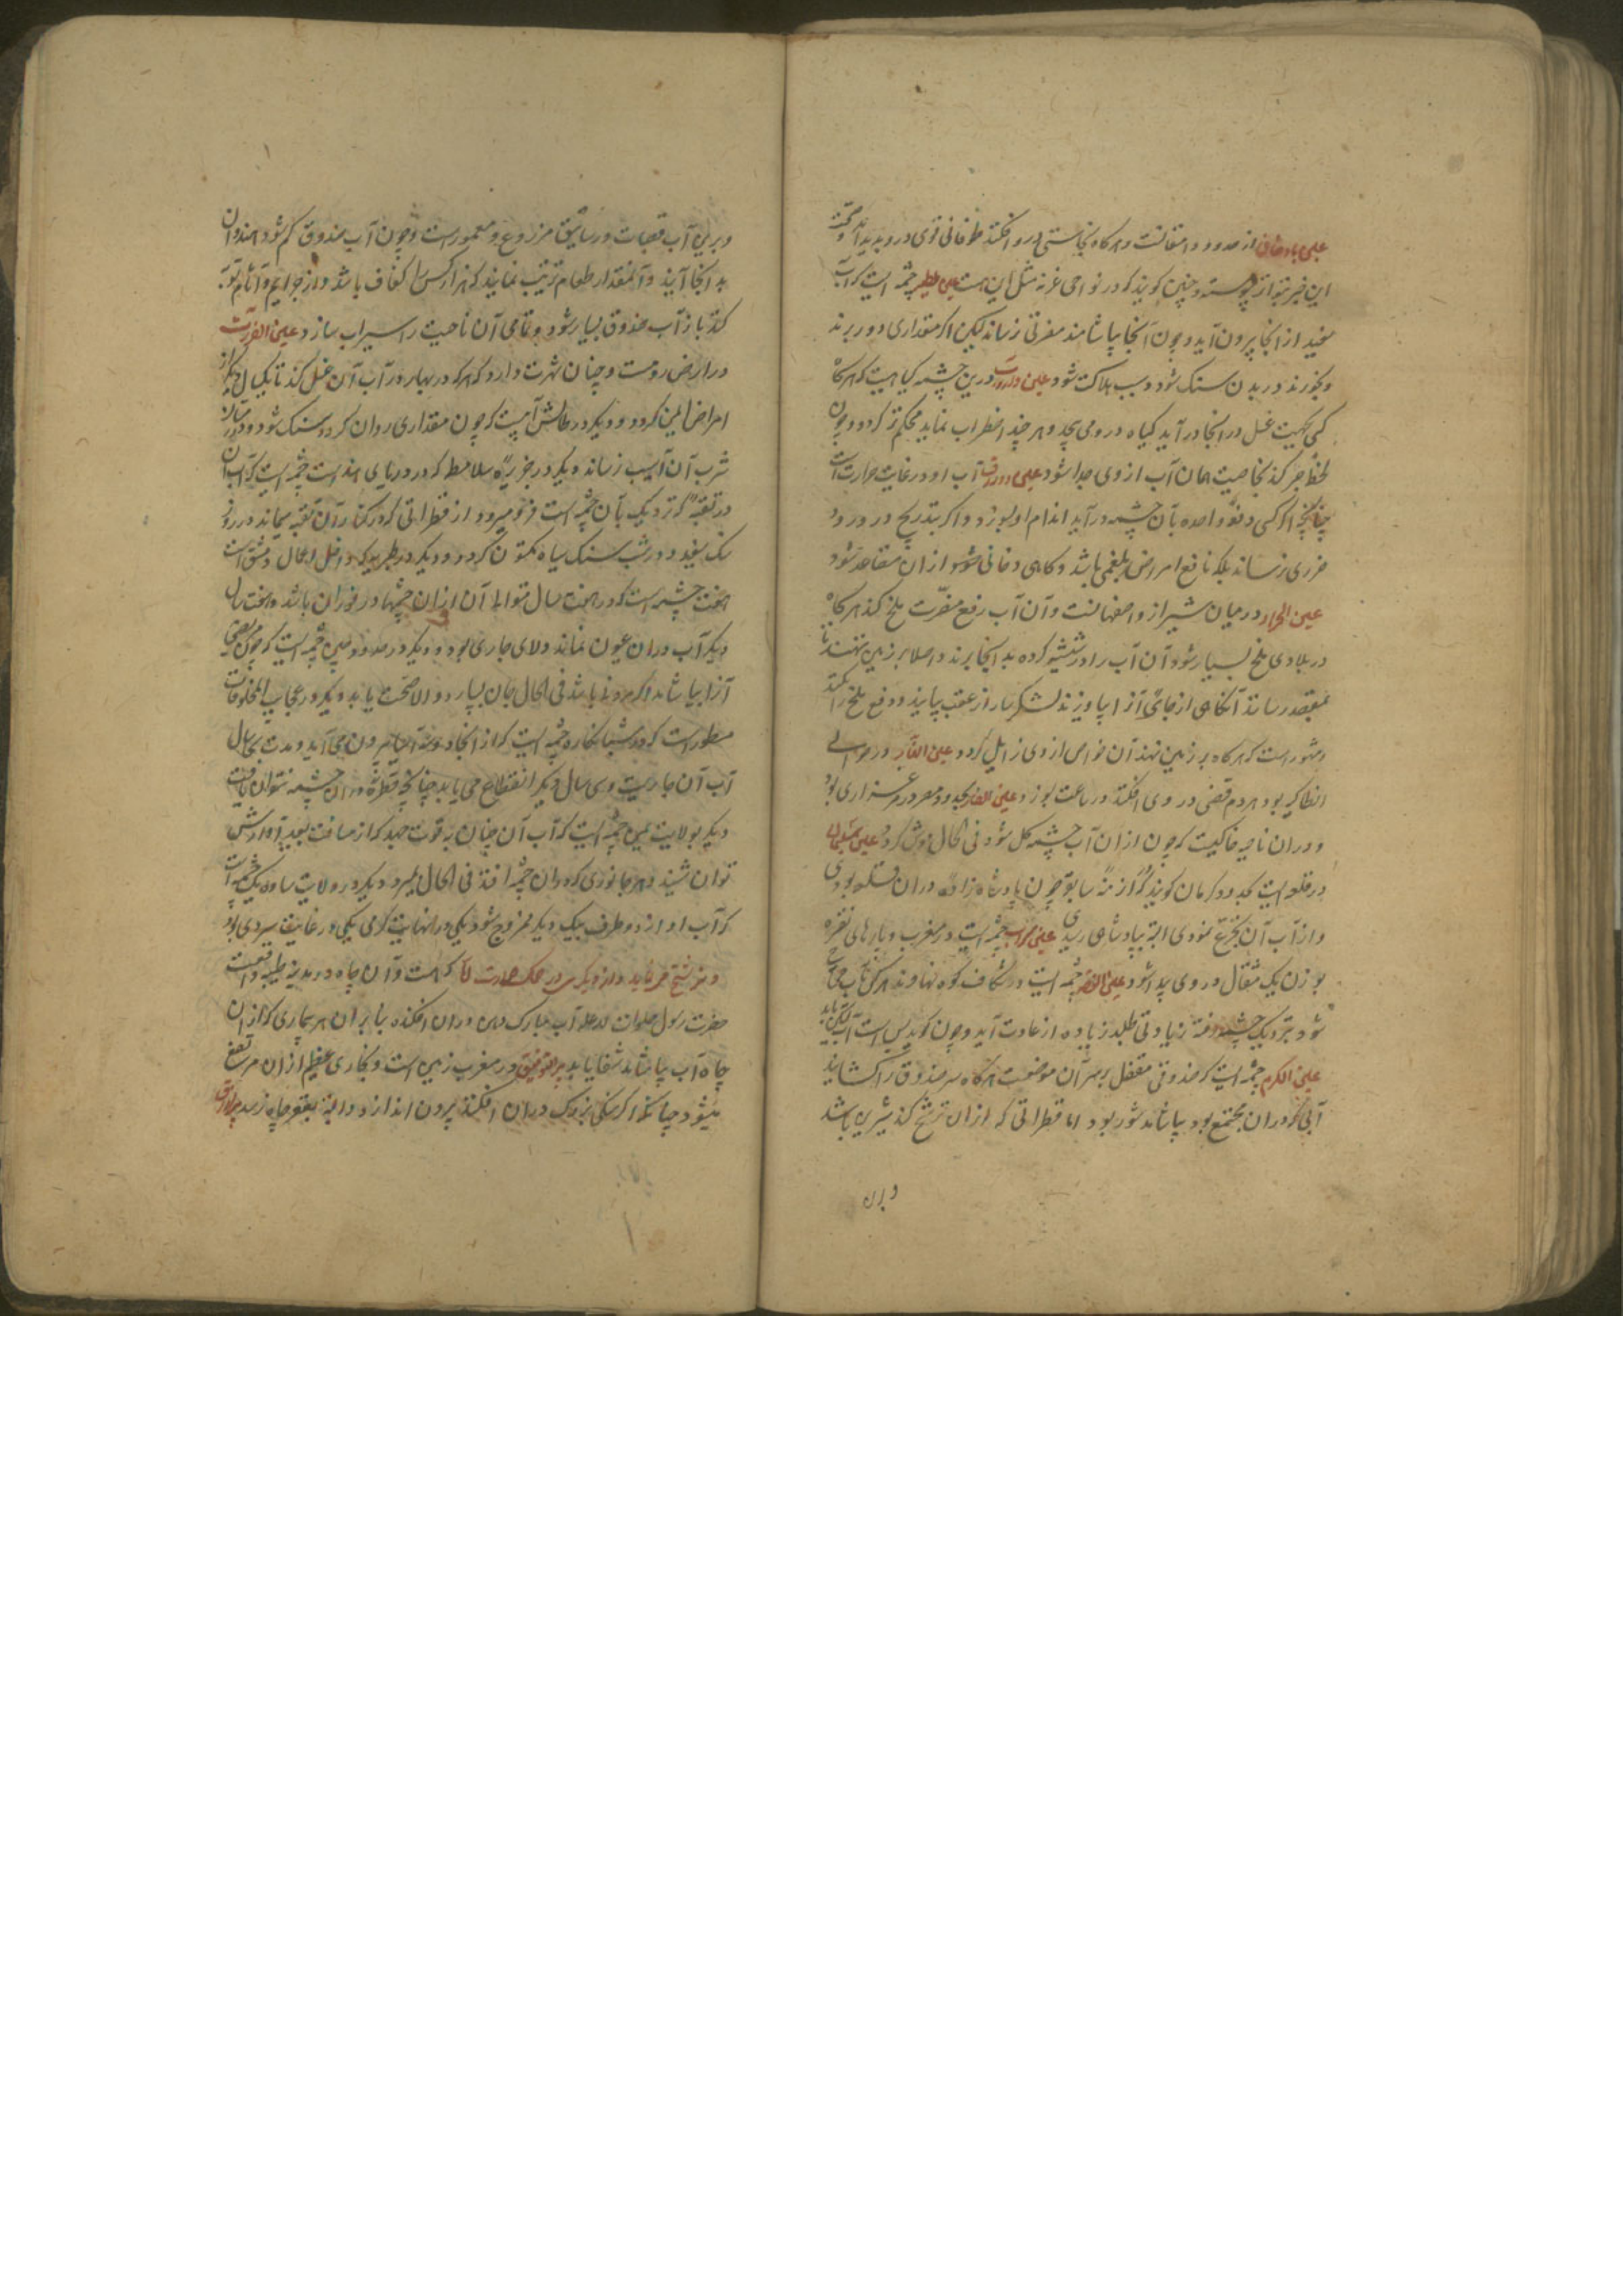 عین بادخانی از حدود دامغانست و هرگاه نجاستی در و افکنند طوفانی قوی در و پدید آید و صحت
این خبر بتواتر پیوسته و چنین کویند که در نواحی غزنه مثل این هست عین چشمه ایست که آب
سفید از انجا بیرون آید و چون آنجا بیاشامند مضرتی نرساند لیکن اکر مقداری دور برند
و بخورند در بدن سنک شود و سبب هلاکت شود عین درین چشمه کیاهیست که هرگاه
کسی بجهت غسل در انجا در آید کیاه در و می پیچد و هر چند اضطراب نماید محکم تر کردد و چون
لحظهٔ صبر کند بخاصیت همان آب از وی جدا شود عین دورق آب او در غایت حرارتست
چنانچه اگر کسی دفعةً واحده بآن چشمه در آید اندام او بسوزد و اگر بتدریج در رود
ضرری نرساند بلکه نافع امراض بلغمی باشد و کاهی دخانی از ان متصاعد شود
عین الجراد در میان شیراز و اصفهانست و آن آب رفع مضرّت ملخ کند هرکاه
در بلادی ملخ بسیار شود آن آب را در شیشه کرده بدانجا برند و اصلا بر زمین ننهند تا
بمقصد رسانند آنکاهی از جائی آنرا بیاویزند لشکر سار از عقب بیایند و دفع ملخ کنند
و مشهورست که هرکاه بر زمین نهند آن خواص از وی زایل کردد عین النار در حوالی
انطاکیه بود هردم قصبی در وی افکنند در ساعت بسوزد عین الفار بحدود مصر در مرغزاری بود
و در ان ناحیه خاکیست که چون از ان آب چشمه کل شود فی الحال موش کردد عین سلیمان
در قلعه ایست بحدود کرمان کویند که در ازمنهٔ سابقه چون پادشاه زادهٔ در ان قلعه بودی
و از آب آن تجرع نمودی البته بپادشاهی رسیدی عین چشمه ایست در مغرب و بارهای نقره
بوزن یک مثقال در وی پیدا شود عین چشمه ایست در شکاف کوه نهاوند هرکس بآب محتاج
شود بنزدیک چشمه رفته زیادتی طلبد زیاده از عادت آید و چون کوید بس است آب
عین الکرم چشمه ایست که صندوقی مقفل بر سر آن موضعست هرگاه سر صندوق را کشایند
آبی که در ان مجتمع بود بیاشامند شور بود اما قطراتی که از ان ترشح کند شیرین باشد
و بران
و برین آب قصبات و رساتیق مزروع و معمورست و چون آب صندوق کم شود هندوان
بدانجا آیند و آنمقدار طعام ترتیب نمایند که هزار کس را کفاف باشد و از جرایم و آثام توبه
کنند باز آب صندوق بسیار شود و تمامی آن ناحیت را سیراب سازد عین الفرات
در ارض رومست و چنان شهرت دارد که هرکه در بهار در آب آن غسل کند تا یکسال دیگر از
امراض ایمن کردد و دیکر در طالش آبیست که چون مقداری روان کردد سنک شود و
شرب آن آسیب رساند و دیکر در جزیرهٔ سلامط که در دریای هندست چشمه ایست که آب آن
در ثقبهٔ که نزدیک بآن چشمه است فرو میرود و از قطراتی که در کنار آن ثقبه میماند در روز
سنک سفید و در شب سنک سیاه متکون کردد و دیکر در طبریه که داخل اعمال دمشق است
هفت چشمه است که در هفت سال متوالی آب از ان چشمها در فوران باشد و هفت سال
دیکر آب در ان عیون نماند و لای جاری بود و دیکر در حدود چین چشمه ایست که چون مریضی
آنرا بیاشامد اگر مردنی باشد فی الحال جان بسپارد و الا صحت یابد و دیکر در عجایب المخلوقات
مسطورست که در مشبانکاره چشمه ایست که از انجا دوسه آسیا بیرون می آید و مدت سی سال
آب آن جاریست و سی سال دیکر انقطاع می یابد چنانچه قطرهٔ در ان چشمه نتوان یافت
دیکر بولایت یمن چشمه ایست که آب آن چنان بقوت جهد که از مسافت بعید آوازش
توان شنید و هر جانوری که در ان چشمه افتد فی الحال بمیرد و دیکر در ولایت ساوه یک چشمه ایست
که آب او از دو طرف بیک دیکر ممزوج شود یکی در نهایت کرمی یکی در غایت سردی بود
کهست و آن چاه در مدینه طیبه واقعست
حضرت رسول صلوات الله علیه آب مبارک دهن در ان افکنده بنابر ان هر بیماری که از ان
چاه آب بیاشامد شفا یابد در مغرب زمین است و بخاری عظیم از ان مرتفع
میشود چنانکه اکر سنکی بزرک در ان افکنند بیرون اندازد و البته بقعر چاه نرسد